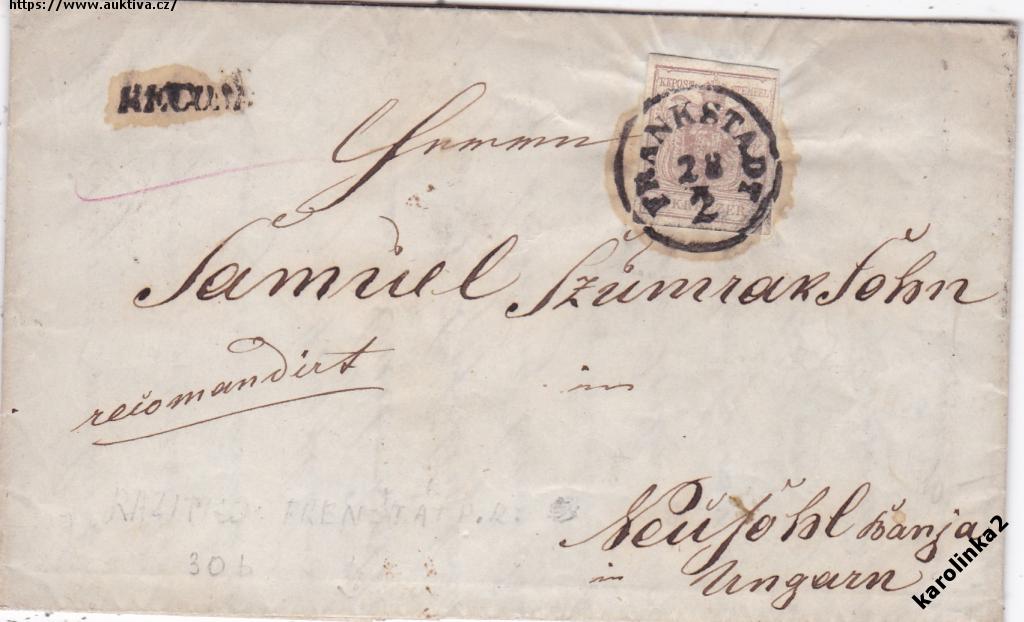 https://www.auktiva.cz/
RECOM
Herrn
KKPOST STEMPEL
FRANKSTADT
28
2
Samuel Szumrak Sohn
recomandirt
in
RAZITKO FRENŠTAT P.R.
30 b
Neusohl Banja
in Ungarn
karolinka2